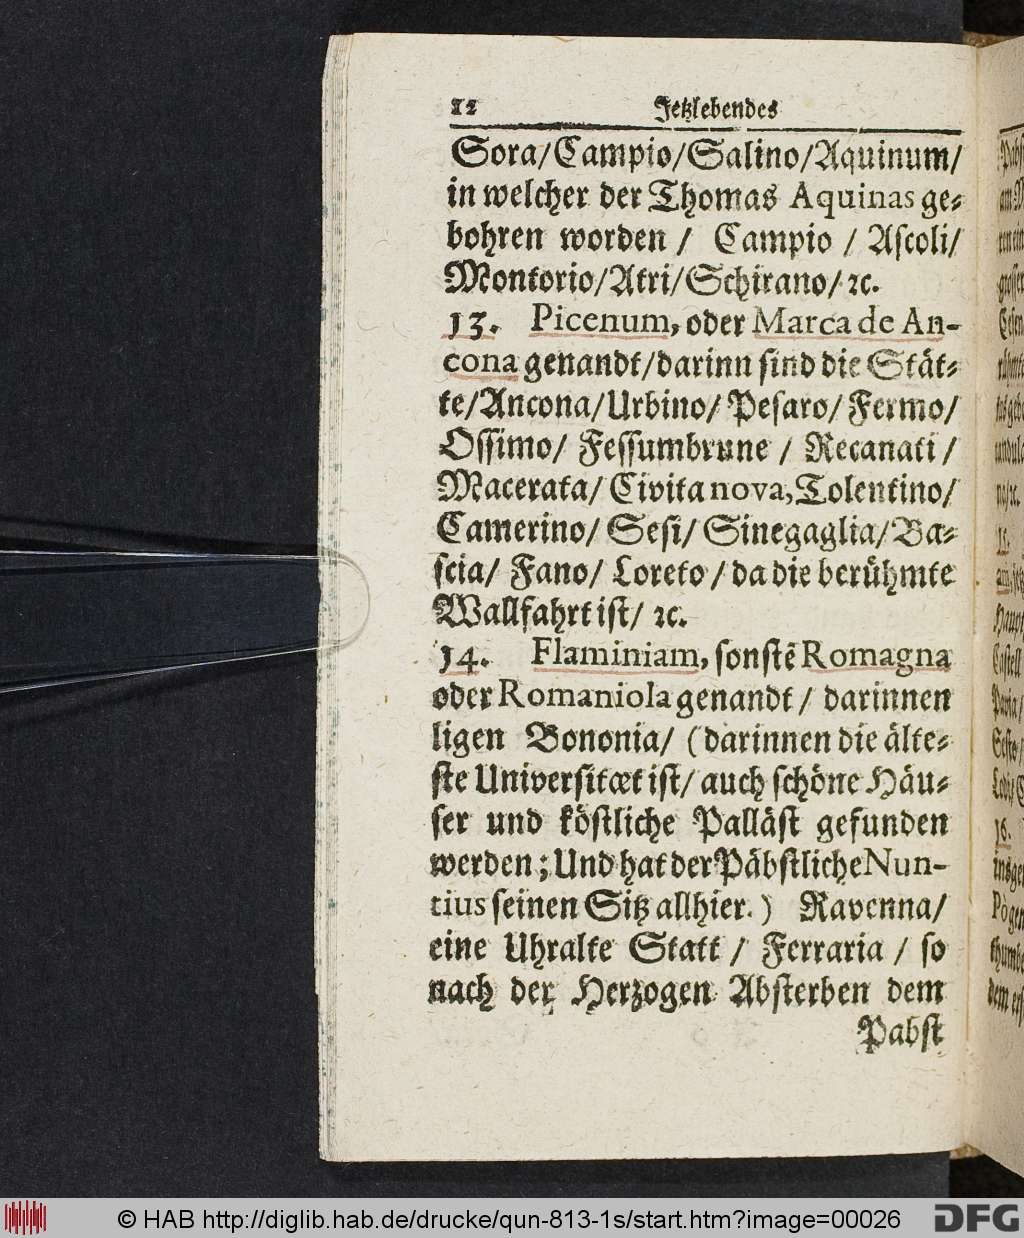 12 Jetzlebendes
Sora/Campio/Salino/Aquinum/
in welcher der Thomas Aquinas ge⸗
bohren worden / Campio / Aſcoli/
Montorio/Atri/Schirano/ ꝛc.
13. Picenum, oder Marca de An-
cona genandt/darinn ſind die Stät⸗
te/Ancona/Urbino/ Peſaro/ Fermo/
Oſſimo/ Feſſumbrune / Recanati /
Macerata/ Civita nova, Tolentino/
Camerino/ Seſi/ Sinegaglia/ Ba⸗
ſcia/ Fano/ Loreto / da die berühmte
Wallfahrt iſt/ ꝛc.
14. Flaminiam, ſonſtẽ Romagna
oder Romaniola genandt / darinnen
ligen Bononia/ (darinnen die älte⸗
ſte Univerſitæt iſt/ auch ſchöne Häu⸗
ſer und köſtliche Palläſt gefunden
werden; Und hat der Päbſtliche Nun-
tius ſeinen Sitz allhier.) Ravenna/
eine Uhralte Statt / Ferraria / ſo
nach der Herzogen Abſterben dem
Pabſt
© HAB http://diglib.hab.de/drucke/qun-813-1s/start.htm?image=00026
DFG